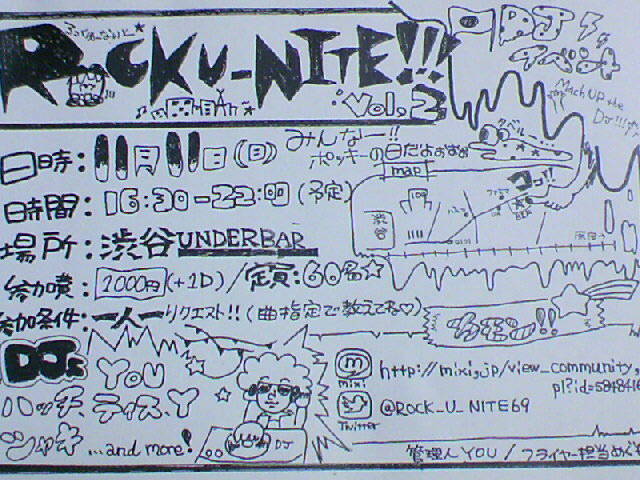 ROCK U-NITE!!!
Vol,2
DJ
イベント
Mach UP the
DJ!!!
日時：11月11日(日)
みんなー!!
ポッキーの日だぉぉぉぉ
map
時間：16:30-22:00(予定)
渋谷
109
ココ!!
場所：渋谷UNDERBAR
参加費：2000円(+1D)/定員：60名☆
参加条件：一人一リクエスト!!(曲指定で教えてね♡)
カモン!!
DJs
YOU
ハッチ ティス、Y
シャキ ...and more!
DJ
mixi
http://mixi.jp/view_community,
pl?id=5848416
Twitter
@ROCK_U_NITE69
管理人YOU/フライヤー担当めぐ